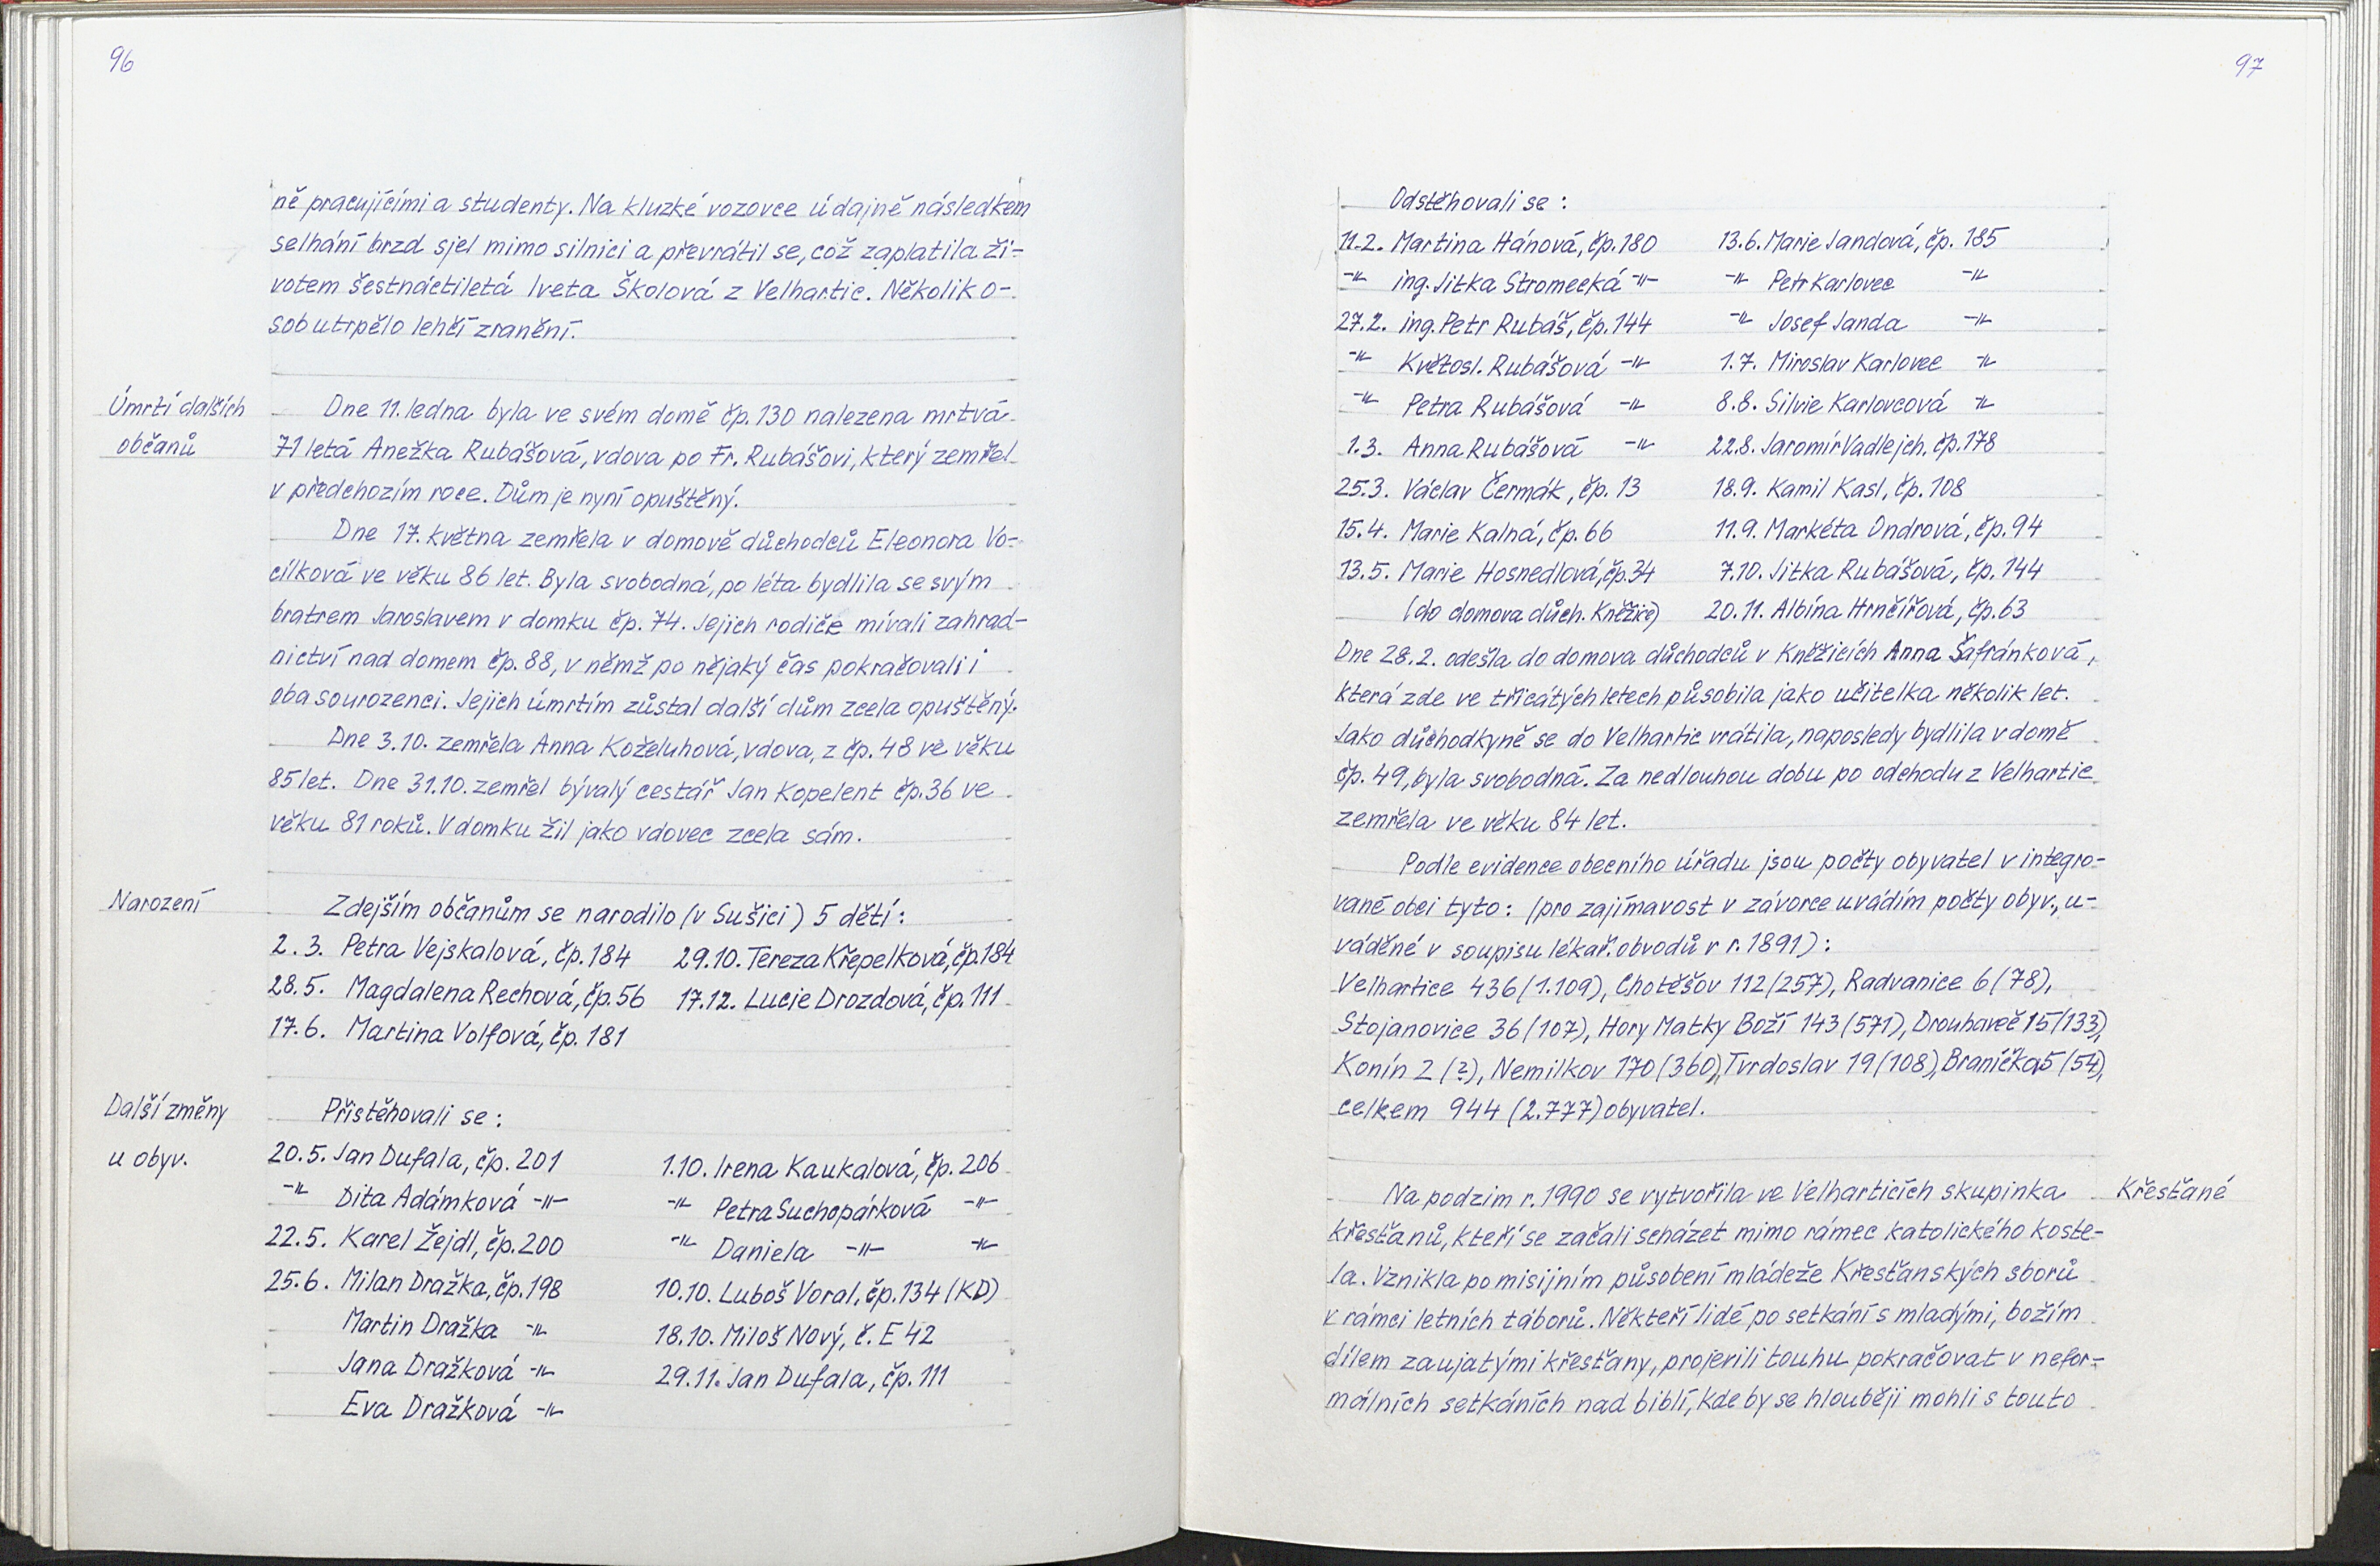 96
ně pracujícími a studenty. Na kluzké vozovce údajně následkem
selhání brzd sjel mimo silnici a převrátil se, což zaplatila ži-
votem šestnáctiletá Iveta Školová z Velhartic. Několik o-
sob utrpělo lehčí zranění.
Úmrtí dalších
občanů
Dne 11. ledna byla ve svém domě čp. 130 nalezena mrtvá
71 letá Anežka Rubášová, vdova po Fr. Rubášovi, který zemřel
v předchozím roce. Dům je nyní opuštěný.
Dne 17. května zemřela v domově důchodců Eleonora Vo-
cílková ve věku 86 let. Byla svobodná, po léta bydlila se svým
bratrem Jaroslavem v domku čp. 74. Jejich rodiče mívali zahrad-
nictví nad domem čp. 88, v němž po nějaký čas pokračovali i
oba sourozenci. Jejich úmrtím zůstal další dům zcela opuštěný.
Dne 3.10. zemřela Anna Koželuhová, vdova, z čp. 48 ve věku
85 let. Dne 31.10. zemřel bývalý cestář Jan Kopelent čp. 36 ve
věku 81 roků. V domku žil jako vdovec zcela sám.
Narození
Zdejším občanům se narodilo (v Sušici) 5 dětí:
2.3. Petra Vejskalová, čp. 184 29.10. Tereza Křepelková, čp. 184
28.5. Magdalena Rechová, čp. 56 17.12. Lucie Drozdová, čp. 111
17.6. Martina Volfová, čp. 181
Další změny
u obyv.
Přistěhovali se:
20.5. Jan Dufala, čp. 201 1.10. Irena Kaukalová, čp. 206
-"- Dita Adámková -"- -"- Petra Suchopárková -"-
22.5. Karel Žejdl, čp. 200 -"- Daniela -"- -"-
25.6. Milan Dražka, čp. 198 10.10. Luboš Voral, čp. 134 (KD)
Martin Dražka -"- 18.10. Miloš Nový, č. E 42
Jana Dražková -"- 29.11. Jan Dufala, čp. 111
Eva Dražková -"-
97
Odstěhovali se:
11.2. Martina Hánová, čp. 180 13.6. Marie Jandová, čp. 185
-"- ing. Jitka Stromecká -"- -"- Petr Karlovec -"-
27.2. ing. Petr Rubáš, čp. 144 -"- Josef Janda -"-
-"- Květosl. Rubášová -"- 1.7. Miroslav Karlovec -"-
-"- Petra Rubášová -"- 8.8. Silvie Karlovcová -"-
1.3. Anna Rubášová -"- 22.8. Jaromír Vadlejch, čp. 178
25.3. Václav Čermák, čp. 13 18.9. Kamil Kasl, čp. 108
15.4. Marie Kalná, čp. 66 11.9. Markéta Ondrová, čp. 94
13.5. Marie Hosnedlová, čp. 34 7.10. Jitka Rubášová, čp. 144
(do domova důch. Kněžice) 20.11. Albína Hrnčířová, čp. 63
Dne 28.2. odešla do domova důchodců v Kněžicích Anna Šafránková,
která zde ve třicátých letech působila jako učitelka několik let.
Jako důchodkyně se do Velhartic vrátila, naposledy bydlila v domě
čp. 49, byla svobodná. Za nedlouhou dobu po odchodu z Velhartic
zemřela ve věku 84 let.
Podle evidence obecního úřadu jsou počty obyvatel v integro-
vané obci tyto: (pro zajímavost v závorce uvádím počty obyv., u-
váděné v soupisu lékař. obvodů v r. 1891):
Velhartice 436 (1.109), Chotěšov 112 (257), Radvanice 6 (78),
Stojanovice 36 (107), Hory Matky Boží 143 (571), Drouhaveč 15 (133),
Konín 2 (?), Nemilkov 170 (360), Tvrdoslav 19 (108), Braníčka 5 (54),
celkem 944 (2.777) obyvatel.
Na podzim r. 1990 se vytvořila ve Velharticích skupinka
Křesťané
křesťanů, kteří se začali scházet mimo rámec katolického koste-
la. Vznikla po misijním působení mládeže Křesťanských sborů
v rámci letních táborů. Někteří lidé po setkání s mladými, božím
dílem zaujatými křesťany, projevili touhu pokračovat v nefor-
málních setkáních nad biblí, kde by se hlouběji mohli s touto